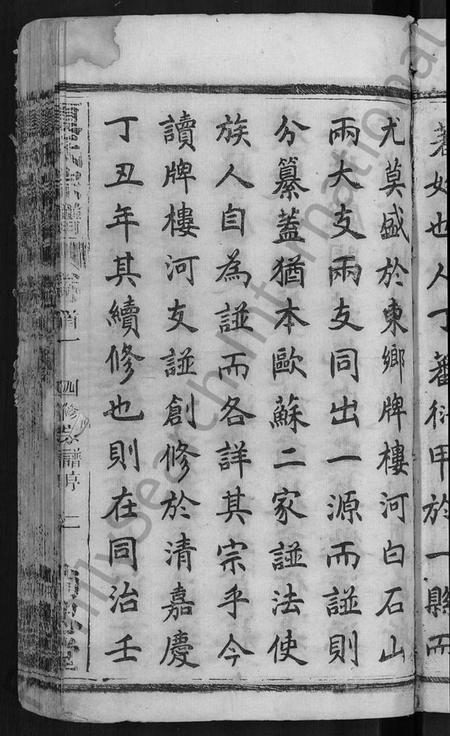 著姓也人丁蕃衍甲於一縣而
尤莫盛於東鄉牌樓河白石山
兩大支兩支同出一源而諩則
分纂蓋猶本歐蘇二家諩法使
族人自為諩而各詳其宗乎今
讀牌樓河支諩創修於清嘉慶
丁丑年其續修也則在同治壬
卷首一 四修宗譜序 二
FamilySearch International